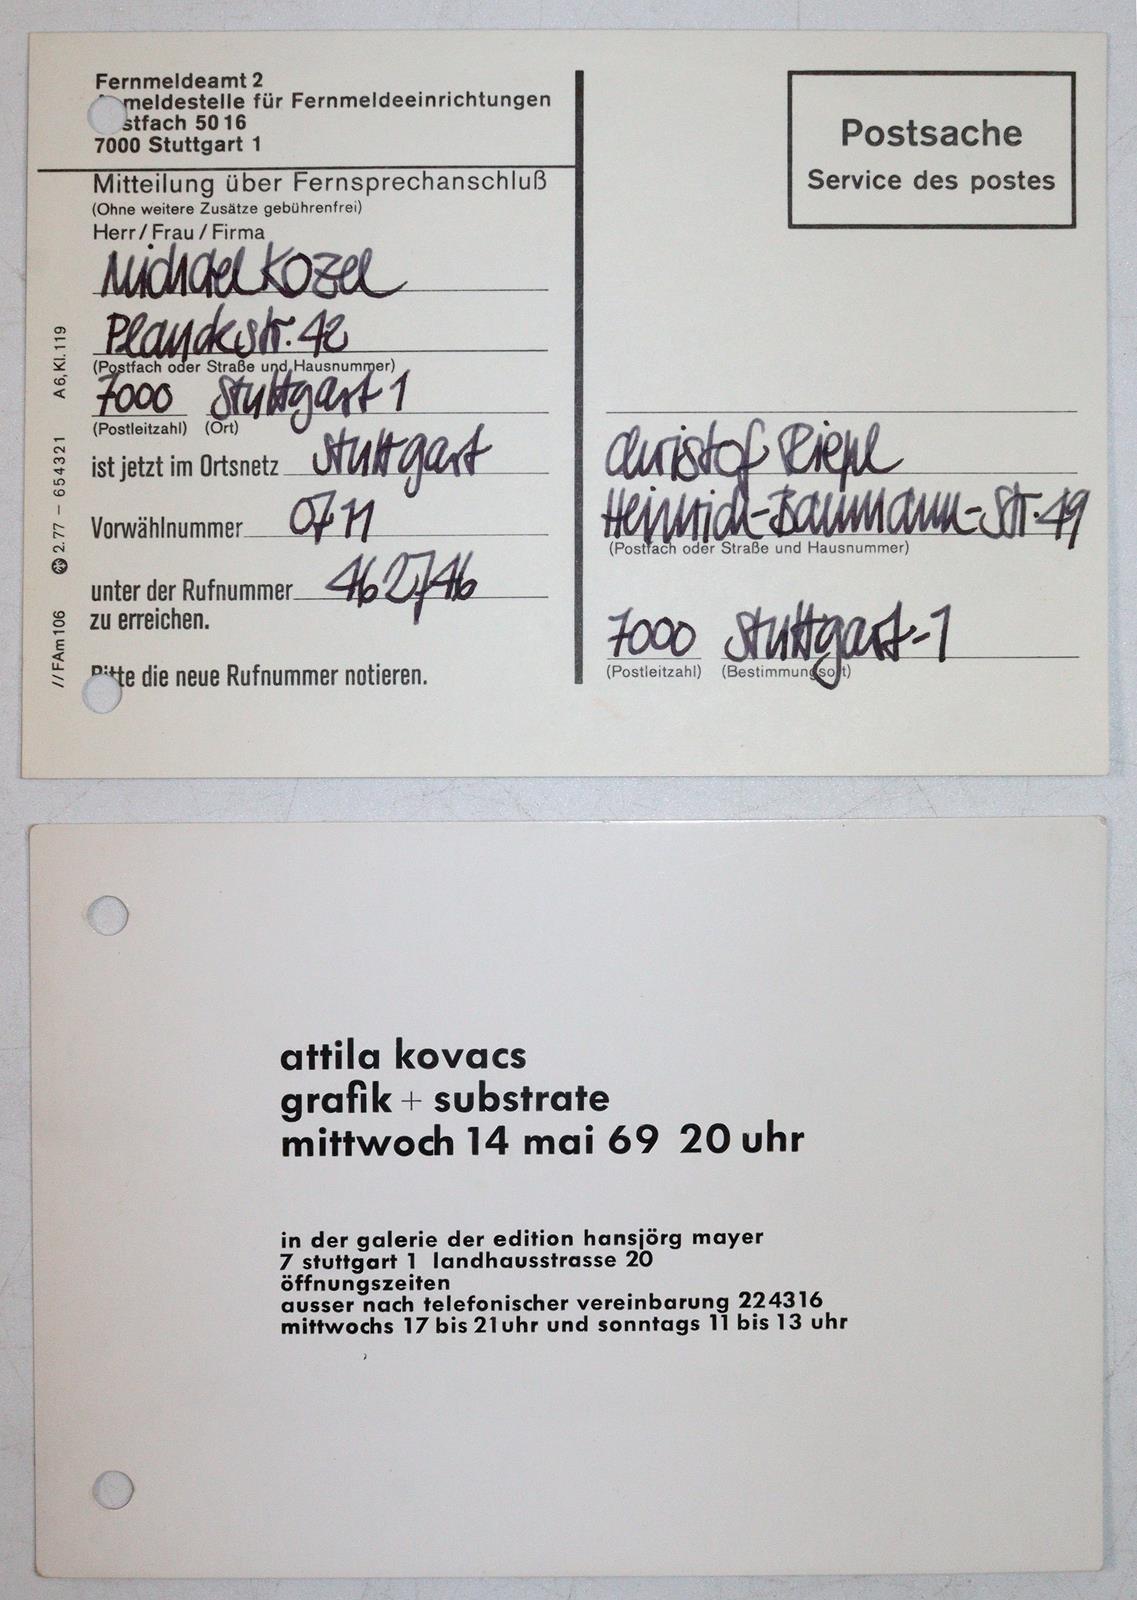 Fernmeldeamt 2
meldestelle für Fernmeldeeinrichtungen
stfach 50 16
7000 Stuttgart 1
Mitteilung über Fernsprechanschluß
(Ohne weitere Zusätze gebührenfrei)
Herr / Frau / Firma
Michael Kozel
Planckstr. 42
(Postfach oder Straße und Hausnummer)
7000 Stuttgart 1
(Postleitzahl) (Ort)
ist jetzt im Ortsnetz Stuttgart
Vorwählnummer 0711
unter der Rufnummer 462746
zu erreichen.
Bitte die neue Rufnummer notieren.
// FAm 106 2.77 – 654321 A6, Kl. 119
Postsache
Service des postes
Christof Riepl
Heinrich-Baumann-Str. 49
(Postfach oder Straße und Hausnummer)
7000 Stuttgart-1
(Postleitzahl) (Bestimmungsort)
attila kovacs
grafik + substrate
mittwoch 14 mai 69 20 uhr
in der galerie der edition hansjörg mayer
7 stuttgart 1 landhausstrasse 20
öffnungszeiten
ausser nach telefonischer vereinbarung 224316
mittwochs 17 bis 21 uhr und sonntags 11 bis 13 uhr